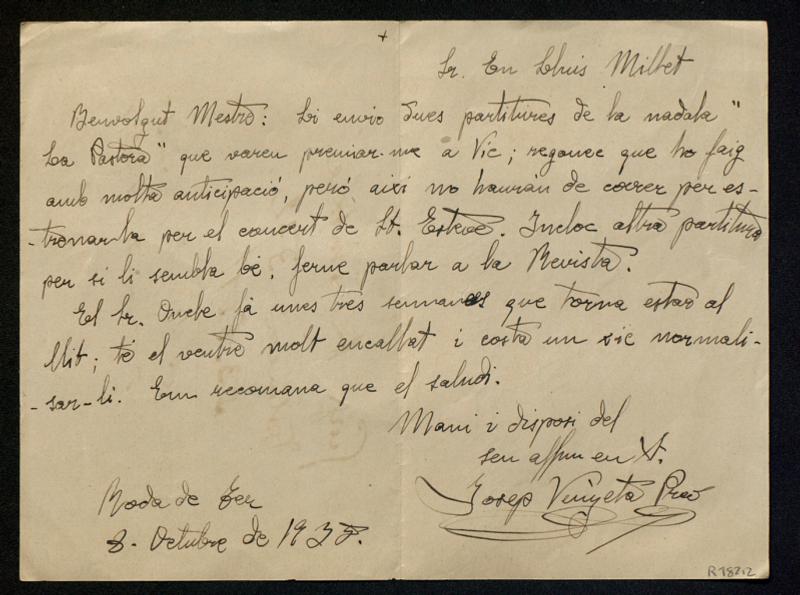 +
Sr. En Lluis Millet
Benvolgut Mestre: Li envio dues partitures de la nadala "
La Pastora" que varen premiar-me a Vic; regonec que ho faig
amb molta anticipació, peró aixi no hauràn de correr per es-
-trenar-la per el concert de St. Esteve. Incloc altra partitura
per si li sembla bé, ferne parlar a la Revista.
El Sr. Oncle fà unes tres semmanes que torna estar al
llit; té el ventre molt encallat i costa un sic normali-
-sar-li. Em recomana que el saludi.
Mani i disposi del
seu affm en Xt.
Josep Vinyeta Pbre
Roda de Ter
8 - Octubre de
R 18212